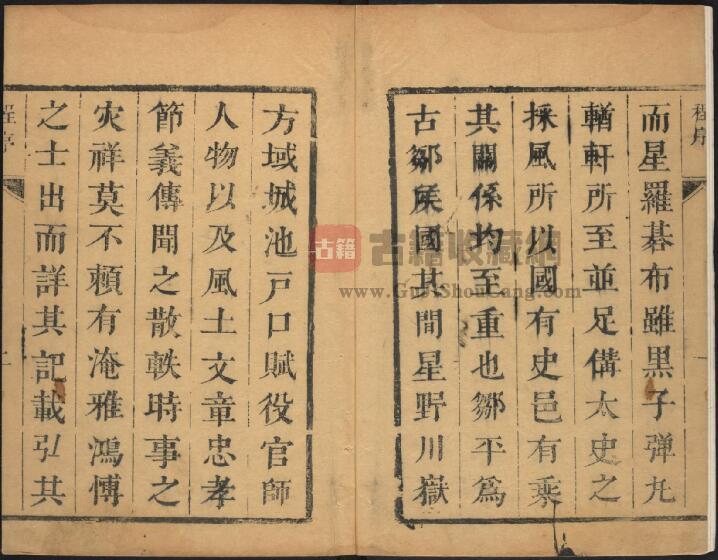 程序
而星羅碁布雖黒子弹丸
輶軒所至並足備太史之
採風所以國有史邑有乘
其關係均至重也鄒平爲
古鄒侯國其間星野川嶽
方域城池戸口賦役官師
人物以及風土文章忠孝
節義傳聞之散軼時事之
灾祥莫不頼有淹雅鴻博
之士出而詳其記載弘其
程序
古籍
古籍收藏網
www.GuJiShouCang.com